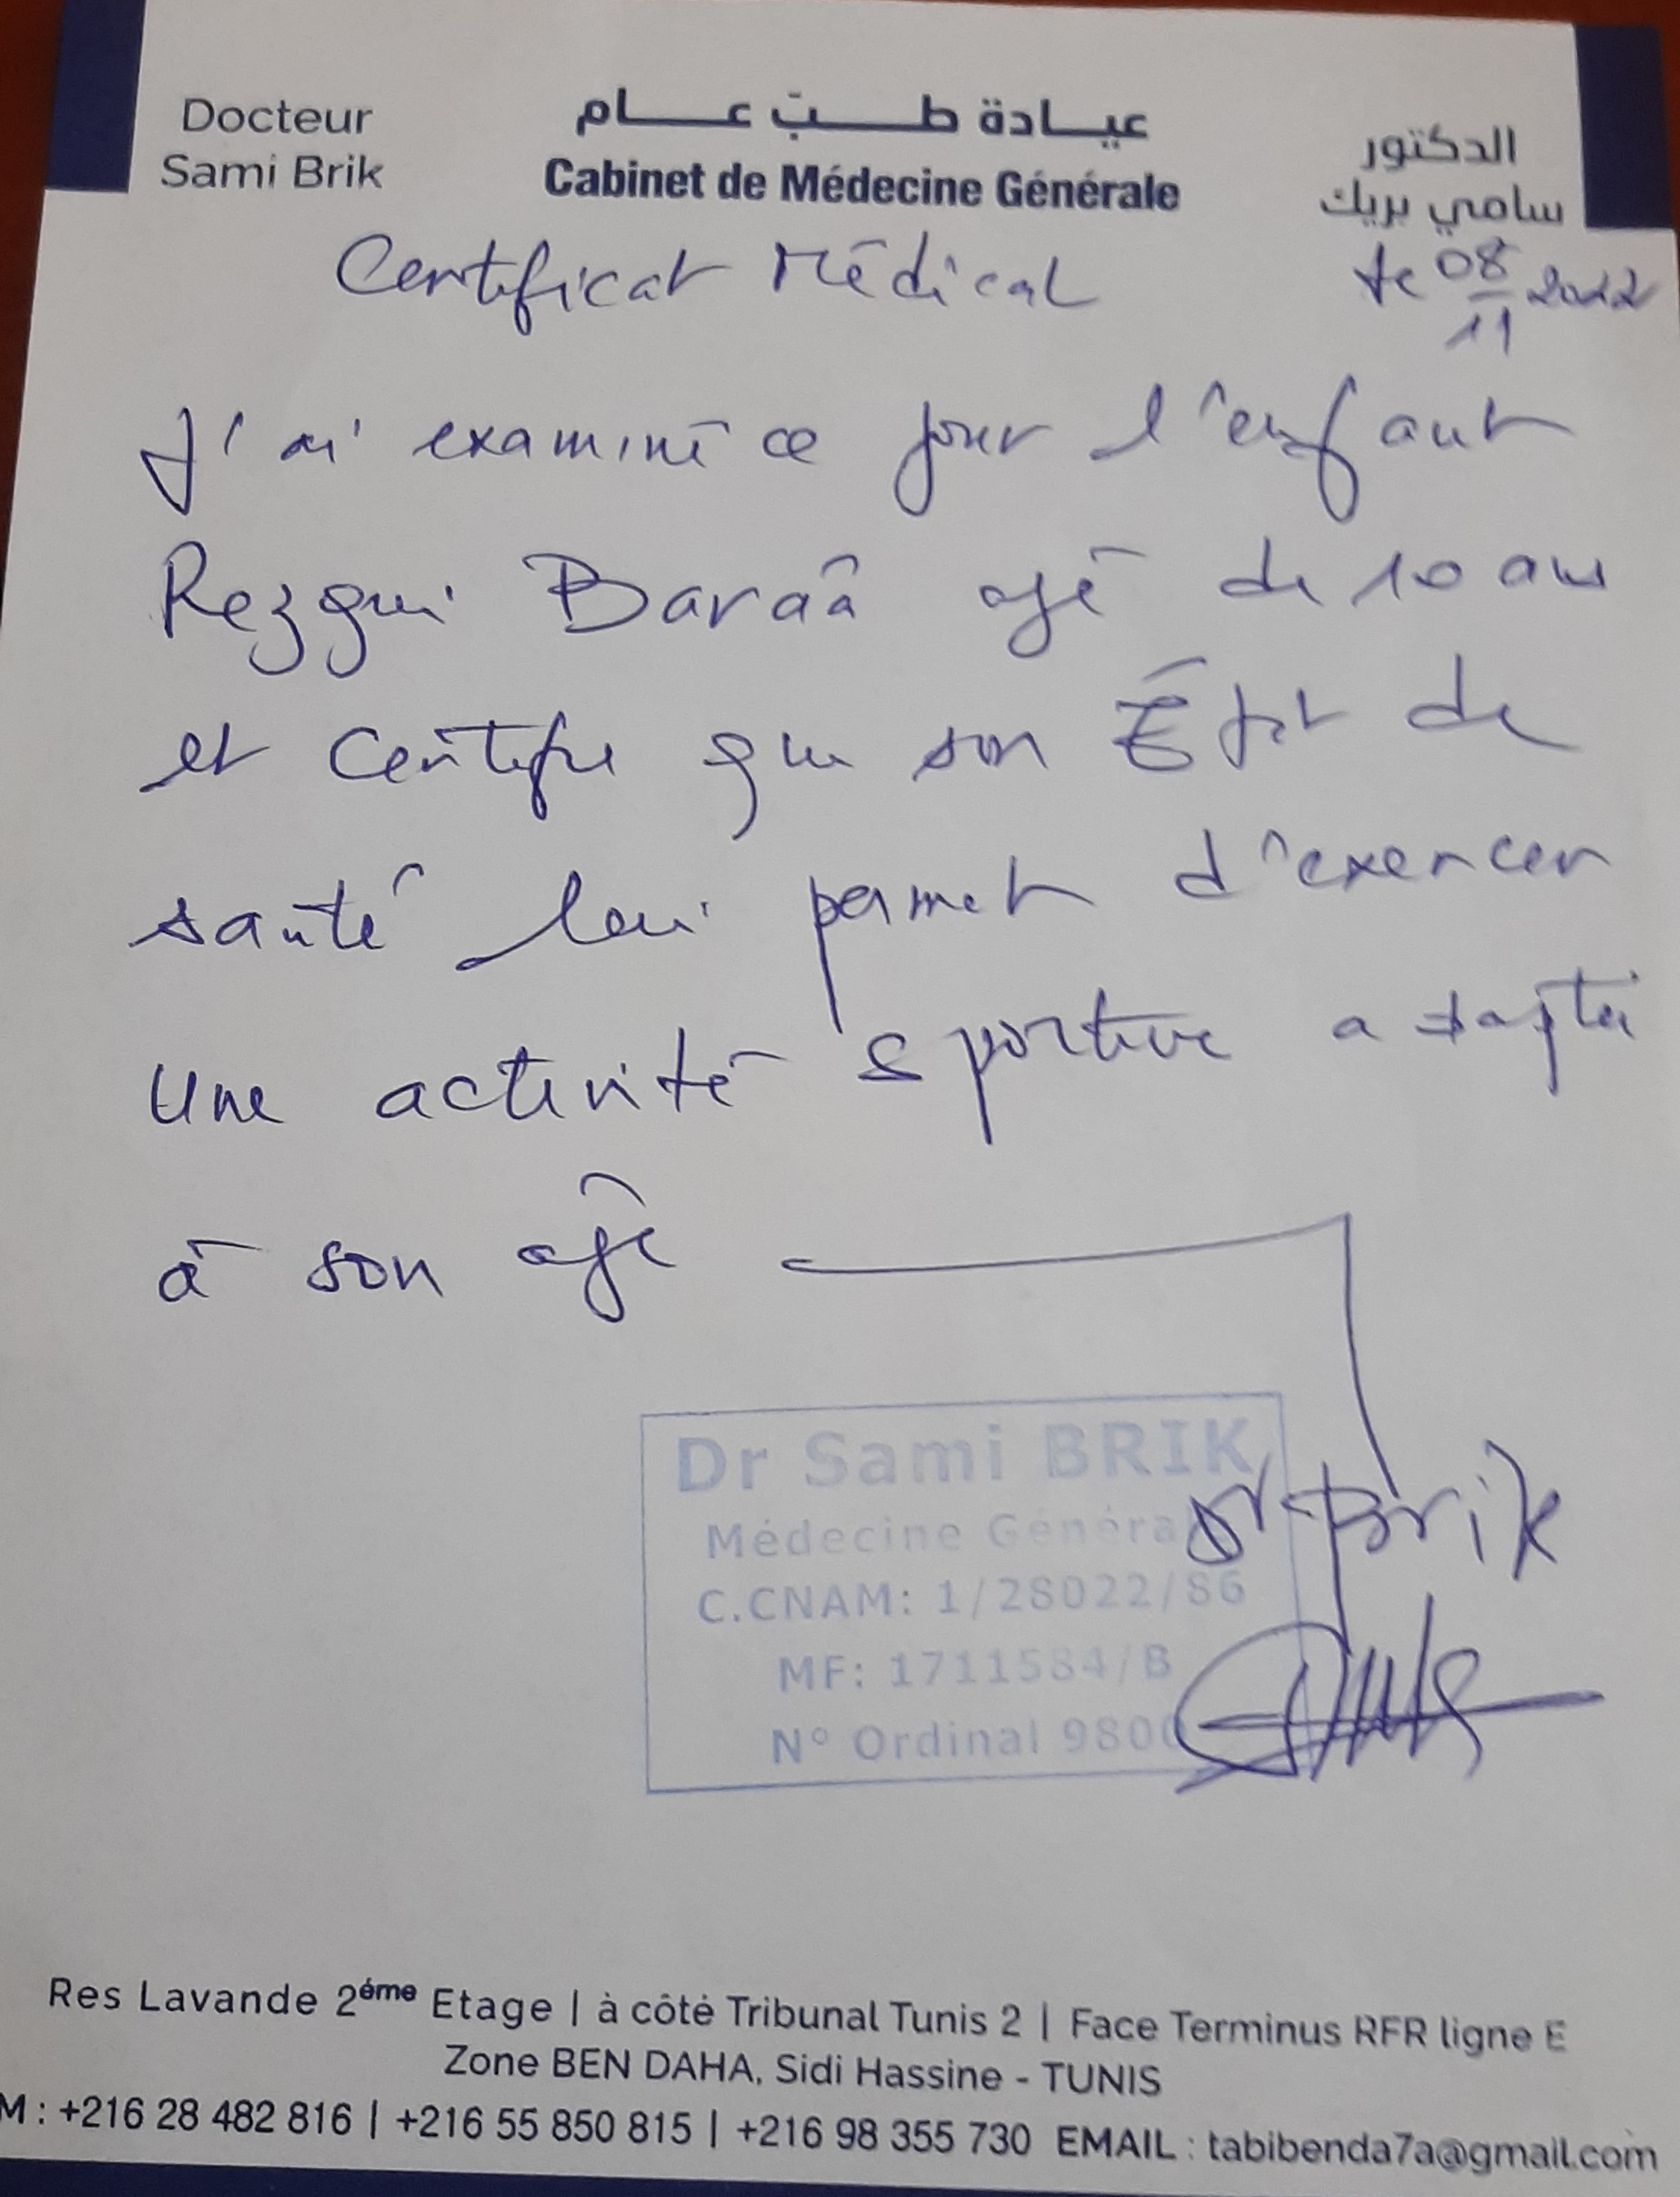 Docteur
Sami Brik
عيادة طب عام
Cabinet de Médecine Générale
الدكتور
سامي بريك
Certificat Médical
le 08/11 2022
J'ai examiné ce jour l'enfant
Rezgui Baraâ agé de 10 ans
et certifie que son État de
santé lui permet d'exercer
Une activité sportive adaptée
à son age
Dr Sami BRIK
Médecine Général
C.CNAM: 1/28022/86
MF: 1711584/B
N° Ordinal
Dr Brik
Res Lavande 2éme Etage | à côté Tribunal Tunis 2 | Face Terminus RFR ligne E
Zone BEN DAHA, Sidi Hassine - TUNIS
M : +216 28 482 816 | +216 55 850 815 | +216 98 355 730 EMAIL : tabibenda7a@gmail.com